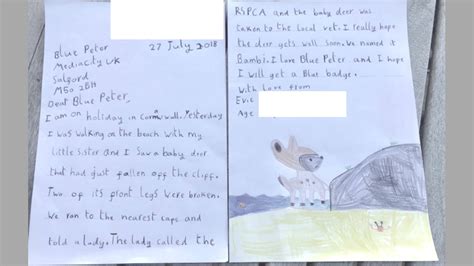 27 July 2018
Blue Peter
Mediacity UK
Salford
M50 2BH
Dear Blue Peter,
I am on holiday in Cornwall. Yesterday
I was walking on the beach with my
little sister and I saw a baby deer
that had just fallen off the cliff.
Two of its front legs were broken.
We ran to the nearest cafe and
told a lady. The lady called the
RSPCA and the baby deer was
taken to the local vet. I really hope
the deer gets well soon. We named it
Bambi. I love Blue Peter and I hope
I will get a Blue badge.
With love from
Evie
Age